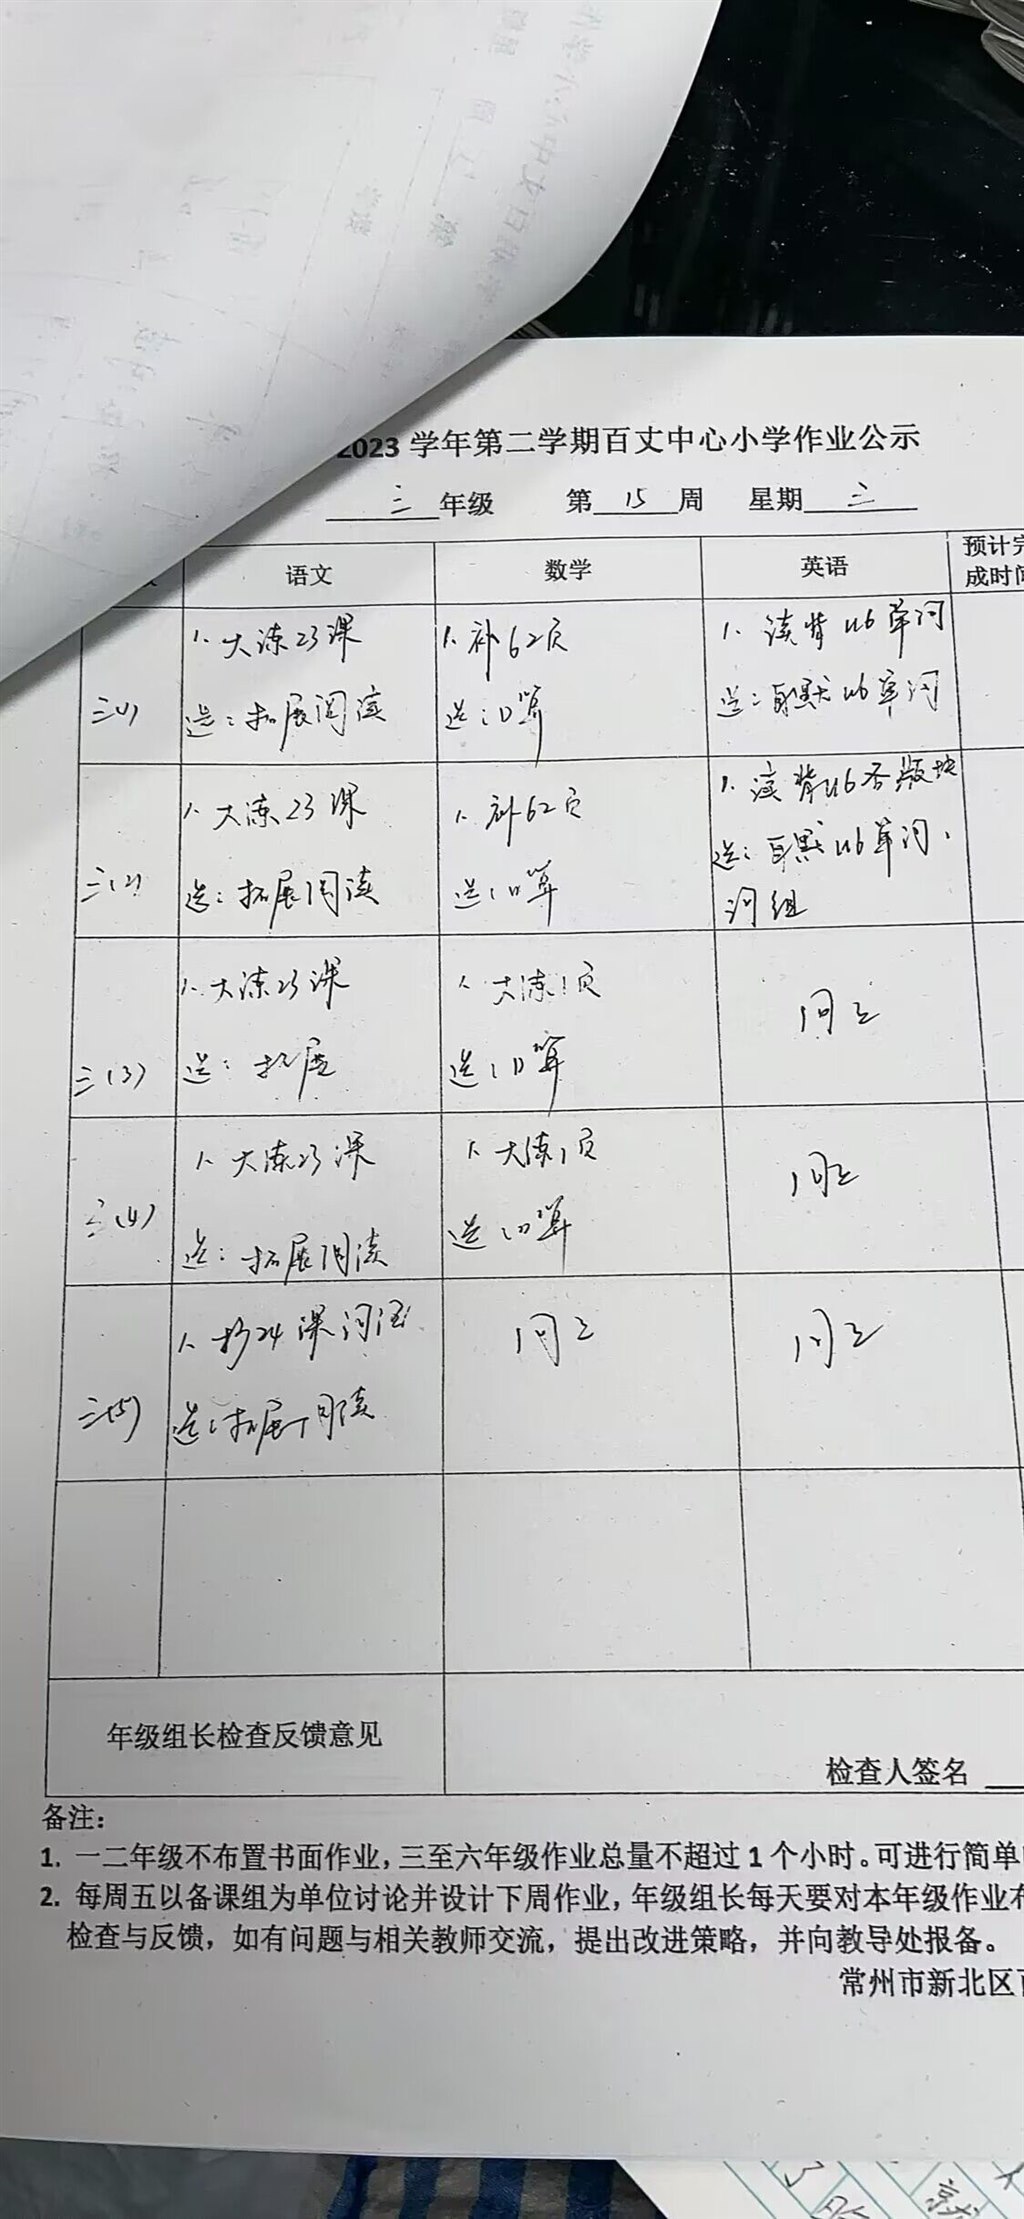 2023 学年第二学期百丈中心小学作业公示
三 年级 第 15 周 星期 三
语文 数学 英语 预计完
成时间
三(1)
1. 大练23课
选：拓展阅读
1. 补62页
选：口算
1. 读背U6单词
选：自默U6单词
三(2)
1. 大练23课
选：拓展阅读
1. 补62页
选：口算
1. 读背U6各版块
选：自默U6单词、
词组
三(3)
1. 大练23课
选：拓展
1. 大练1页
选：口算
同上
三(4)
1. 大练23课
选：拓展阅读
1. 大练1页
选：口算
同上
三(5)
1. 抄24课词语
选：拓展阅读
同上
同上
年级组长检查反馈意见
检查人签名
备注：
1. 一二年级不布置书面作业，三至六年级作业总量不超过 1 个小时。可进行简单
2. 每周五以备课组为单位讨论并设计下周作业，年级组长每天要对本年级作业布
检查与反馈，如有问题与相关教师交流，提出改进策略，并向教导处报备。
常州市新北区百